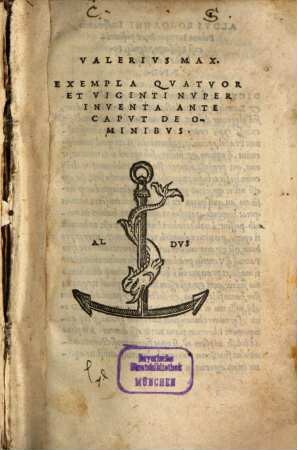 C. S.
VALERIVS MAX.
EXEMPLA QVATVOR
ET VIGENTI NVPER
INVENTA ANTE
CAPVT DE O-
MINIBVS.
AL DVS
Bayerische
Staatsbibliothek
MÜNCHEN